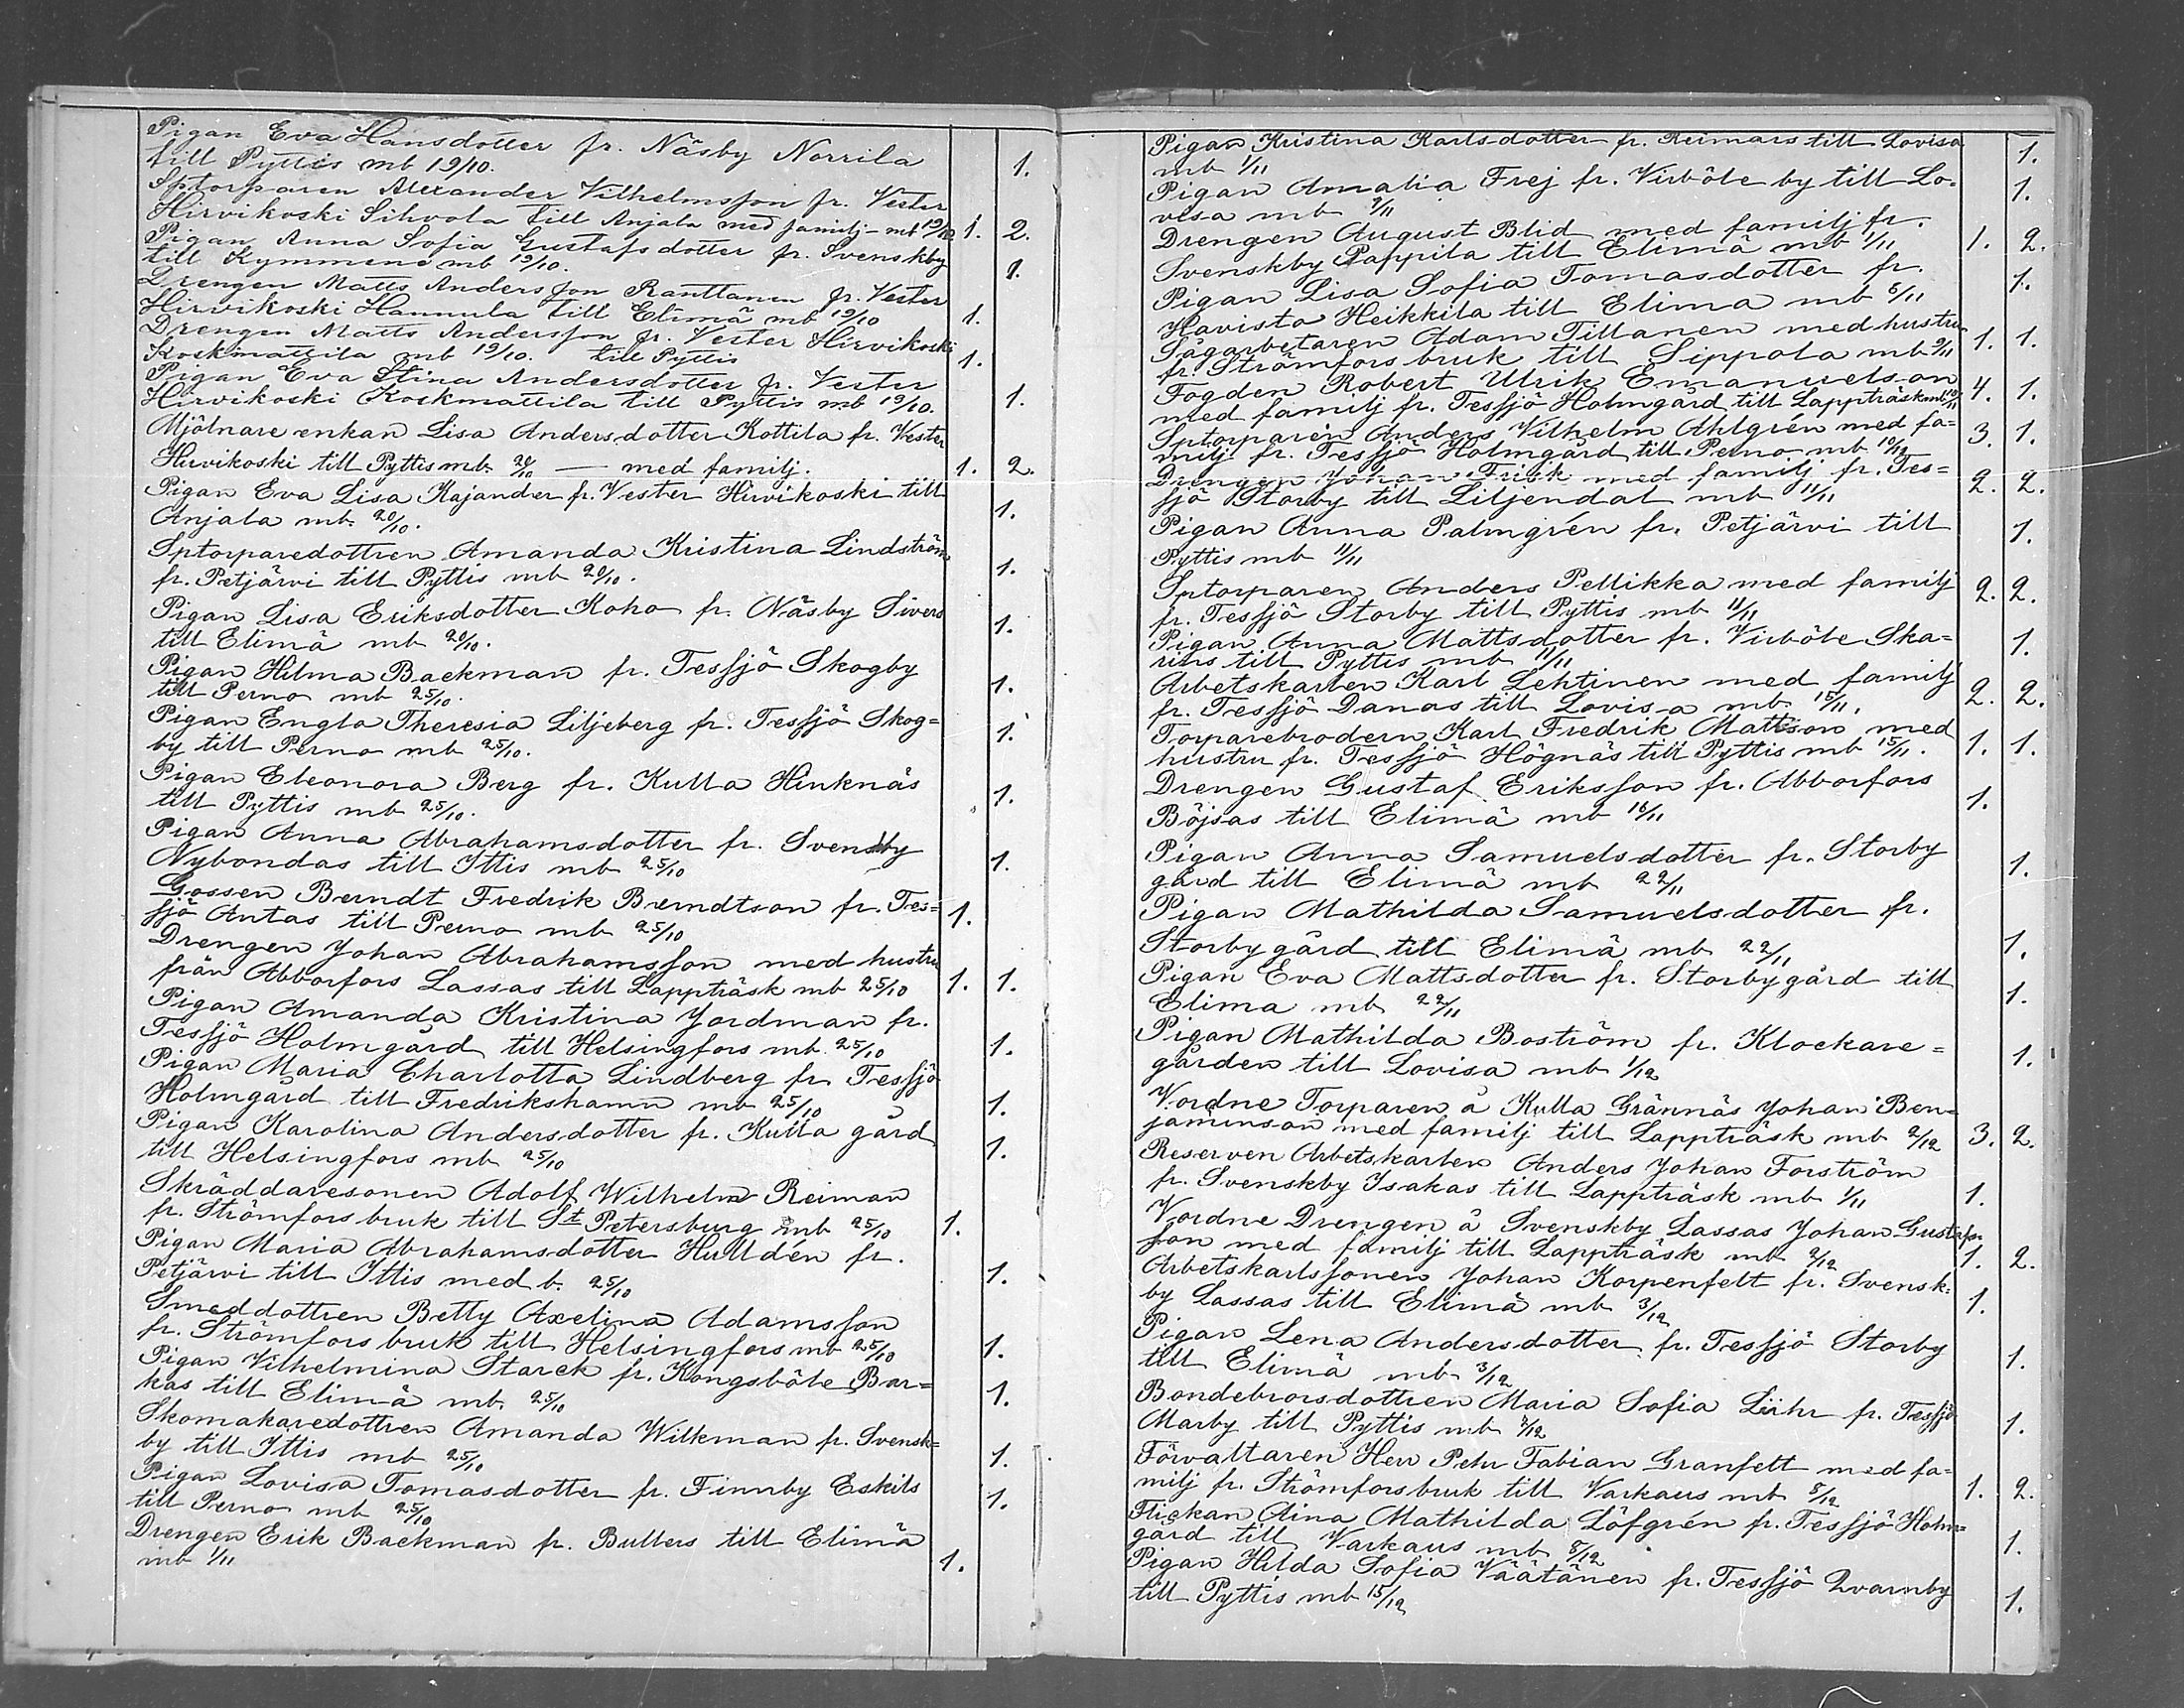 Pigan Eva Hansdotter fr. Näsby Norrila
till Pyttis mb 19/10. 1.
Sptorparen Alexander Vilhelmsson fr. Vester
Hirvikoski Sihvola till Anjala med familj - mb 19/10 1. 2.
Pigan Anna Sofia Gustafsdotter fr. Svenskby
till Kymmene mb 19/10. 1.
Drengen Matts Andersson Ranttanen fr. Vester
Hirvikoski Hannula till Elimä mb 19/10 1.
Drengen Matts Andersson fr. Vester Hirvikoski
Koskmattila mb 19/10. till Pyttis 1.
Pigan Eva Stina Andersdotter fr. Vester
Hirvikoski Koskmattila till Pyttis mb 19/10. 1.
Mjölnare enkan Lisa Andersdotter Kottila fr. Vester
Hirvikoski till Pyttis mb. 20/10 — med familj. 1. 2.
Pigan Eva Lisa Kajander fr. Vester Hirvikoski till
Anjala mb. 20/10. 1.
Sptorparedottren Amanda Kristina Lindström
fr. Petjärvi till Pyttis mb 20/10. 1.
Pigan Lisa Eriksdotter Koho fr. Näsby Sivers
till Elimä mb 20/10. 1.
Pigan Hilma Backman fr. Tessjö Skogby
till Perno mb 25/10. 1.
Pigan Engla Theresia Liljeberg fr. Tessjö Skog=
by till Perno mb 25/10. 1.
Pigan Eleonora Berg fr. Kulla Hinknäs
till Pyttis mb 25/10. 1.
Pigan Anna Abrahamsdotter fr. Svenskby
Nybondas till Ittis mb 25/10 1.
Gossen Berndt Fredrik Berndtson fr. Tes=
sjö Antas till Perno mb 25/10 1.
Drengen Johan Abrahamsson med hustru
från Abborfors Lassas till Lappträsk mb 25/10 1. 1.
Pigan Amanda Kristina Jordman fr.
Tessjö Holmgård till Helsingfors mb. 25/10 1.
Pigan Maria Charlotta Lindberg fr. Tessjö
Holmgård till Fredrikshamn mb 25/10 1.
Pigan Karolina Andersdotter fr. Kulla gård
till Helsingfors mb 25/10 1.
Skräddaresonen Adolf Wilhelm Reiman
fr. Strömfors bruk till St Petersburg mb 25/10 1.
Pigan Maria Abrahamsdotter Hulldén fr.
Petjärvi till Ittis med b. 25/10 1.
Smeddottren Betty Axelina Adamsson
fr. Strömfors bruk till Helsingfors mb 25/10 1.
Pigan Vilhelmina Starck fr. Kongsböle Bar=
kas till Elimä mb. 25/10 1.
Skomakaredottren Amanda Wilkman fr. Svensk=
by till Ittis mb 25/10 1.
Pigan Lovisa Tomasdotter fr. Finnby Eskils
till Perno mb 25/10 1.
Drengen Erik Backman fr. Bullers till Elimä
mb 1/11 1.
Pigan Kristina Karlsdotter fr. Reimars till Lovisa
mb 1/11 1.
Pigan Amalia Frej fr. Virböle by till Lo-
visa mb 9/11 1.
Drengen August Blid med familj fr.
Svenskby Pappila till Elimä mb 1/11 1. 2.
Pigan Lisa Sofia Tomasdotter fr.
Havisto Heikkila till Elima mb 8/11 1.
Sågarbetaren Adam Tillanen med hustru
fr. Strömfors bruk till Sippola mb 9/11 1. 1.
Fogden Robert Ulrik Emanuelson
med familj fr. Tessjö Holmgård till Lappträsk mb 10/11 4. 1.
Sptorparen Anders Vilhelm Ahlgrén med fa=
milj fr. Tessjö Holmgård till Perno mb 10/11 3. 1.
Drengen Johan Frisk med familj fr. Tes=
sjö Storby till Liljendal mb 11/11 2. 2.
Pigan Anna Palmgrén fr. Petjärvi till
Pyttis mb 11/11 1.
Sptorparen Anders Pellikka med familj
fr. Tessjö Storby till Pyttis mb 11/11 2. 2.
Pigan Anna Mattsdotter fr. Virböle Ska=
rins till Pyttis mb 11/11 1.
Arbetskarlen Karl Lehtinen med familj
fr. Tessjö Danas till Lovisa mb 15/11. 2. 2.
Torparebrodern Karl Fredrik Mattson med
hustru fr. Tessjö Högnäs till Pyttis mb 15/11. 1. 1.
Drengen Gustaf Eriksson fr. Abborfors
Böjsas till Elimä mb 16/11 1.
Pigan Anna Samuelsdotter fr. Storby
gård till Elimä mb 22/11 1.
Pigan Mathilda Samuelsdotter fr.
Storbygård till Elimä mb 22/11 1.
Pigan Eva Mattsdotter fr. Storbygård till
Elima mb 22/11 1.
Pigan Mathilda Boström fr. Klockare=
gården till Lovisa mb 1/12 1.
Vordne Torparen å Kulla Grännäs Johan Ben-
jaminson med familj till Lappträsk mb 2/12 3. 2.
Reserven Arbetskarlen Anders Johan Forström
fr. Svenskby Isakas till Lappträsk mb 1/11 1.
Vordne Drengen å Svenskby Lassas Johan Gustafs
son med familj till Lappträsk mb 2/12 1. 2.
Arbetskarlssonen Johan Korpenfelt fr. Svensk=
by Lassas till Elimä mb 3/12 1.
Pigan Lena Andersdotter fr. Tessjö Storby
till Elimä mb 3/12 1.
Bondebrorsdottren Maria Sofia Lühr fr. Tessjö
Marby till Pyttis mb 7/12 1.
Förvaltaren Herr Petr Fabian Granfelt med fa=
milj fr. Strömforsbruk till Varkaus mb 8/12 1. 2.
Flickan Aina Mathilda Löfgrén fr. Tessjö Holm=
gård till Varkaus mb 8/12 1.
Pigan Hilda Sofia Väätänen fr. Tessjö Qvarnby
till Pyttis mb 15/12 1.